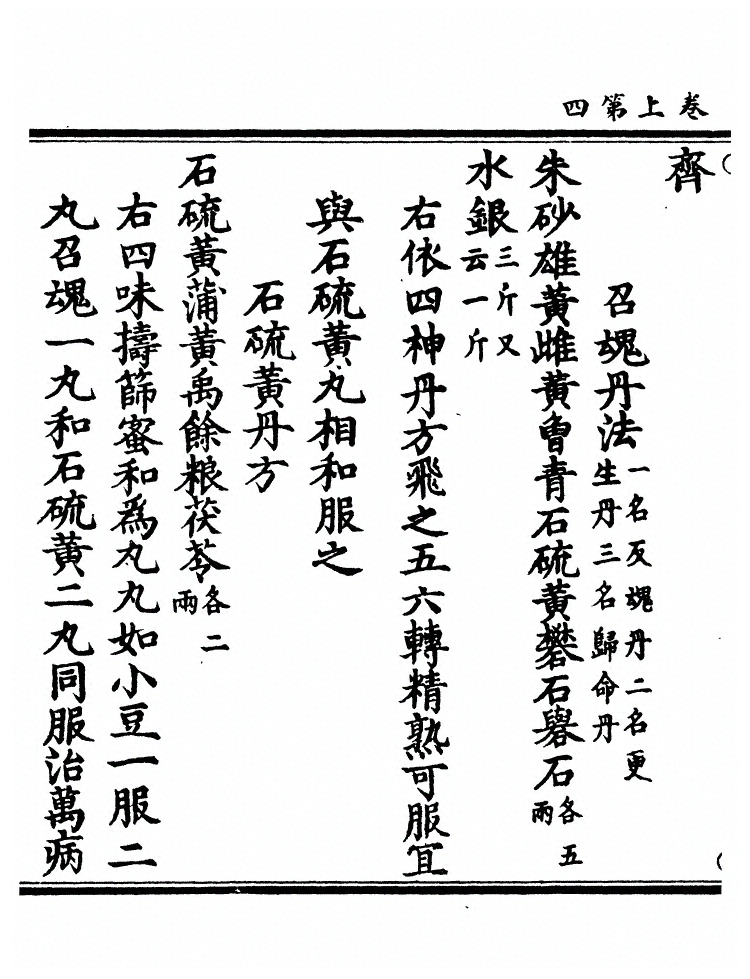 卷上第四
齊
召魂丹法一名反魂丹二名更生丹三名歸命丹
朱砂雄黃雌黃曾青石硫黃礬石礜石各五兩
水銀三斤又云一斤
右依四神丹方飛之五六轉精熟可服宜
與石硫黃丸相和服之
石硫黃丹方
石硫黃蒲黃禹餘粮茯苓各二兩
右四味擣篩蜜和為丸丸如小豆一服二
丸召魂一丸和石硫黃二丸同服治萬病